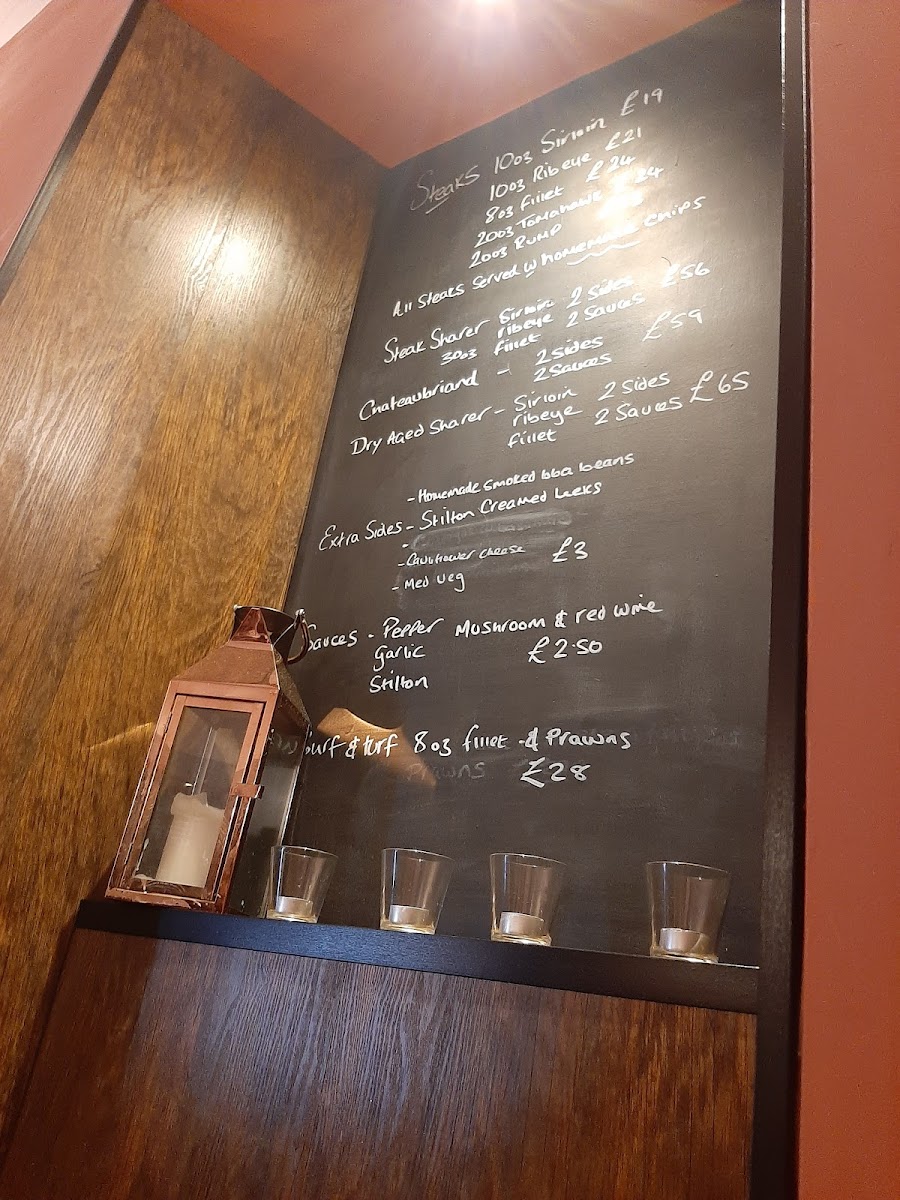 Steaks 10oz Sirloin £19
10oz Ribeye £21
8oz fillet £24
20oz Tomahawk £24
20oz Rump
All Steaks Served w homemade chips
Steak Sharer - Sirloin 2 sides £56
30oz ribeye 2 Sauces
fillet
Chateaubriand - 2 sides £59
2 Sauces
Dry Aged Sharer - Sirloin 2 Sides £65
ribeye 2 Sauces
fillet
- Homemade smoked bbq beans
Extra Sides - Stilton Creamed Leeks
-
- Cauliflower cheese £3
- Med veg
Sauces - Pepper Mushroom & red wine
Garlic £2.50
Stilton
Surf & turf 8oz fillet & Prawns
Prawns £28